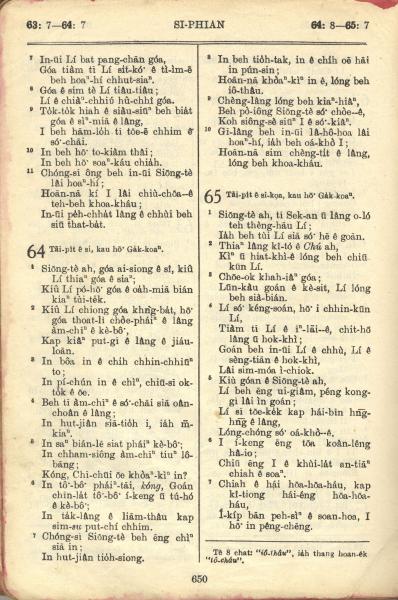 63: 7—64: 7
SI-PHIAN
64: 8—65: 7
7 In-ūi Lí bat pang-chān góa,
Góa tiàm tī Lí si̍t-kó͘ ê tì-ìm-ē
beh hoaⁿ-hí chhut-siaⁿ.
8 Góa ê sim tè Lí tiâu-tiâu;
Lí ê chiàⁿ-chhiú hû-chhî góa.
9 To̍k-to̍k hiah ê siàu-siūⁿ beh bia̍t
góa ê sìⁿ-miā ê lâng,
I beh hām-lo̍h tī tōe-ē chhim ê
só͘-chāi.
10 In beh hō͘ to-kiàm thâi;
In beh hō͘ soaⁿ-káu chia̍h.
11 Chóng-sī ông beh in-ūi Siōng-tè
lâi hoaⁿ-hí;
Hoān-nā kí I lâi chiù-chōa--ê
teh-beh khoa-kháu;
In-ūi pe̍h-chha̍t lâng ê chhùi beh
siū that-ba̍t.
64 Tāi-pit ê si, kau hō͘ Ga̍k-koaⁿ.
1 Siōng-tè ah, góa ai-siong ê sî, kiû
Lí thiaⁿ góa ê siaⁿ;
Kiû Lí pó-hō͘ góa ê oa̍h-miā biàn
kiaⁿ tùi-te̍k.
2 Kiû Lí chiong góa khǹg-ba̍t, hō͘
góa thoat-lī chòe-pháiⁿ ê lâng
àm-chīⁿ ê kè-bô͘;
Kap kiâⁿ put-gī ê lâng ê jiáu-
loān.
3 In bôa in ê chi̍h chhin-chhiūⁿ
to;
In pí-chún in ê chìⁿ, chiū-sī ok-
to̍k ê ōe.
4 Beh tī àm-chīⁿ ê só͘-chāi siā oân-
choân ê lâng;
In hut-jiân siā-tio̍h i, ia̍h m̄
kiaⁿ.
5 In saⁿ bián-lē siat pháiⁿ kè-bô͘;
In chham-siông àm-chīⁿ tiuⁿ lô-
bāng;
Kóng, Chī-chūi ōe khòaⁿ-kìⁿ in?
6 In tô͘-bô͘ pháiⁿ-tāi, kóng, Goán
chīn-la̍t tô͘-bô͘ í-keng ū tú-hó
ê kè-bô͘;
In ta̍k-lâng ê liām-thâu kap
sim-su put-chí chhim.
7 Chóng-sī Siōng-tè beh ēng chìⁿ
siā in;
In hut-jiân tio̍h-siong.
8 In beh tio̍h-tak, in ê chi̍h oē hāi
in pún-sin;
Hoān-nā khòaⁿ-kìⁿ in ê, lóng beh
iô-thâu.
9 Chèng-lâng lóng beh kiaⁿ-hiâⁿ,
Beh pò-iông Siōng-tè só͘ chòe--ê,
Koh siông-sè siūⁿ I ê só͘-kiâⁿ.
10 Gī-lâng beh in-ūi Iâ-hô-hoa lâi
hoaⁿ-hí, ia̍h beh oá-khò I;
Hoān-nā sim chèng-ti̍t ê lâng,
lóng beh khoa-kháu.
65 Tāi-pit ê si-koa, kau hō͘ Ga̍k-koaⁿ.
1 Siōng-tè ah, tī Sek-an ū lâng o-ló
teh thèng-hāu Lí;
Ia̍h beh tùi Lí siā só͘ hē ê goān.
2 Thiaⁿ lâng kî-tó ê Chú ah,
Kìⁿ ū hiat-khì-ê lóng beh chiū
kūn Lí.
3 Chōe-ok khah-iâⁿ góa;
Lūn-kàu goán ê kè-sit, Lí lóng
beh sià-biān.
4 Lí só͘ kéng-soán, hō͘ i chhin-kūn
Lí,
Tiàm tī Lí ê īⁿ-lāi--ê, chit-hō
lâng ū hok-khì;
Goán beh in-ūi Lí ê chhù, Lí ê
sèng-tiān ê hok-khì,
Lâi sim-móa ì-chiok.
5 Kiù góan ê Siōng-tè ah,
Lí beh ēng ui-giâm, péng kong-
gī lâi ìn goán;
Lí sī tōe-ke̍k kap hái-bīn hn̄g-
hn̄g ê lâng,
Lóng-chóng só͘ oá-khò--ê.
6 I í-keng ēng tōa koân-lêng
hâ-io;
Chiū ēng I ê khùi-la̍t an-tiāⁿ
chiah ê soaⁿ.
7 Chiah ê hái hōa-hōa-háu, kap
kî-tiong hái-éng hōa-hōa-
háu,
Í-ki̍p bān peh-sìⁿ ê soan-hoa, I
hō͘ in pêng-chēng.
Tē 8 chat: "iô-thâu", ia̍h thang hoan-e̍k
"tô-cháu".
650